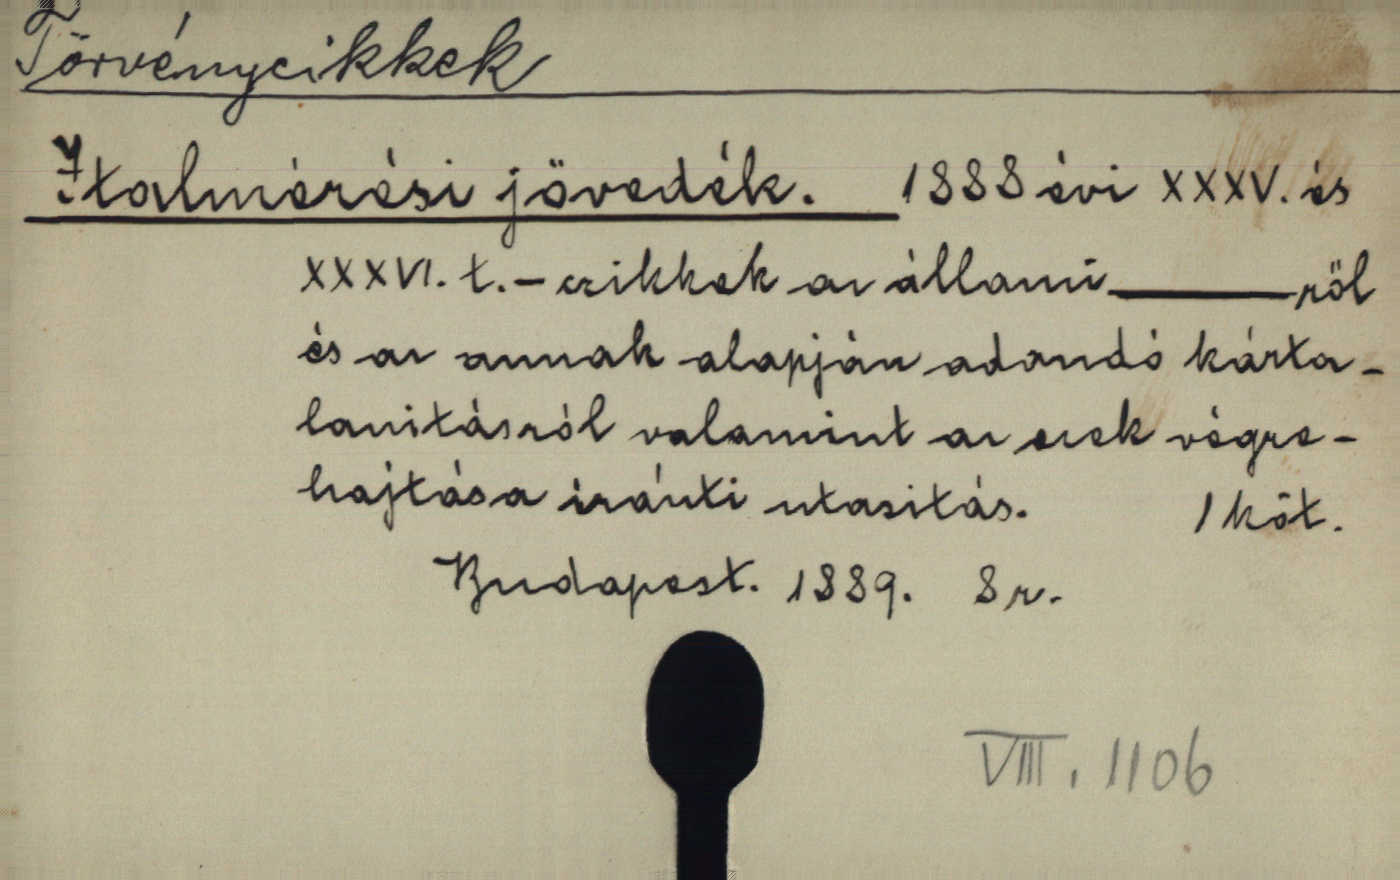 Törvénycikkek
Italmérési jövedék. 1888 évi XXXV. és
XXXVI. t.-czikkek az állami ——— ről
és az annak alapján adandó kárta-
lanitásról valamint az ezek végre-
hajtása iránti utasitás. 1 köt.
Budapest. 1889. 8r.
VIII. 1106